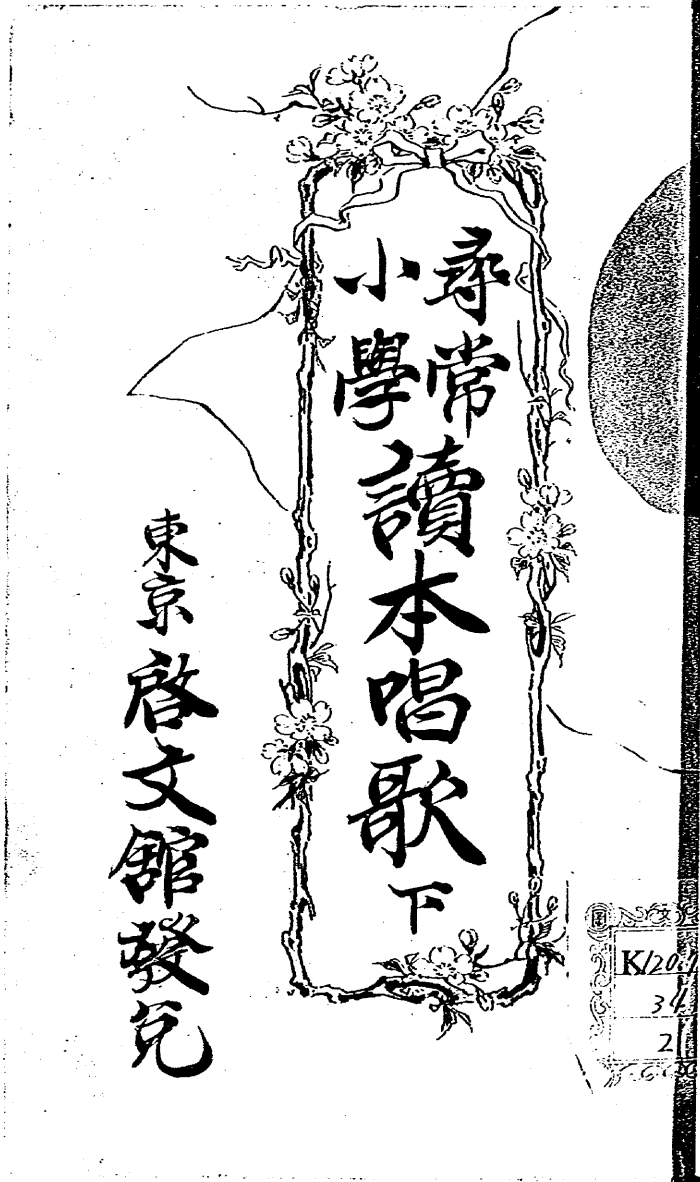 尋常
小學
讀本唱歌
下
東京
啓文館發兌
K/20.1
34
2